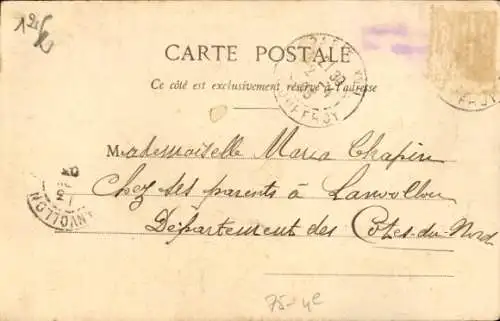 CARTE POSTALE
Ce côté est exclusivement réservé à l'adresse
Mademoiselle Maria Chapin
Chez ses parents à Lanvollon
Département des Côtes-du-Nord
LANVOLLON
75- 4e